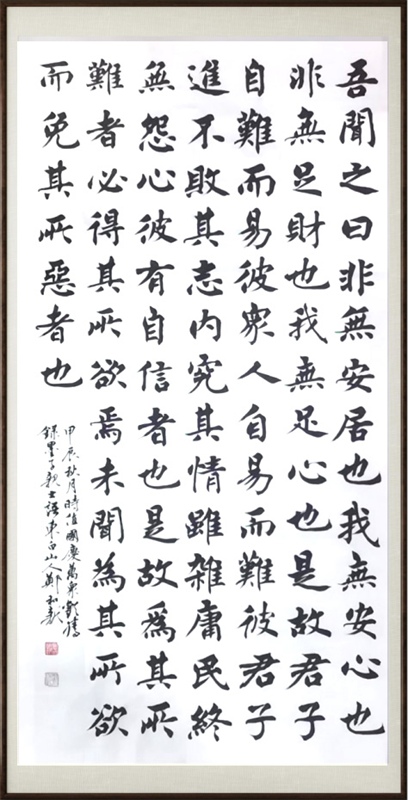 吾聞之曰非無安居也我無安心也
非無足財也我無足心也是故君子
自難而易彼衆人自易而難彼君子
進不敗其志內究其情雖雜庸民終
無怨心彼有自信者也是故為其所
難者必得其所欲焉未聞為其所欲
而免其所惡者也
甲辰秋月時值國慶萬衆歡騰
錄墨子親士語東白山人鄭和